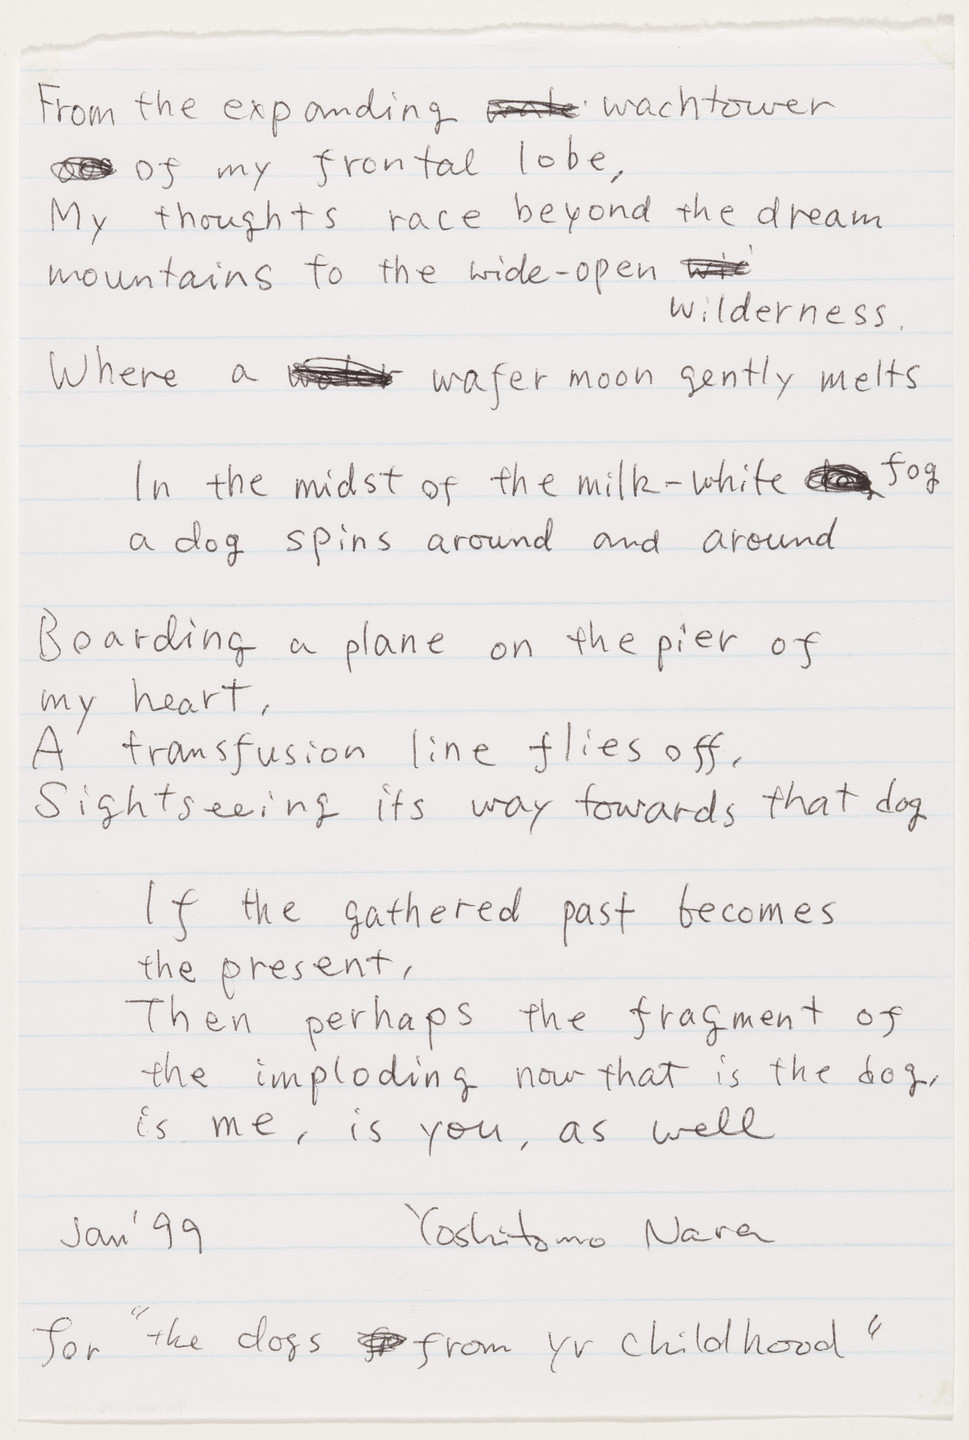 From the expanding wachtower
of my frontal lobe,
My thoughts race beyond the dream
mountains to the wide-open
wilderness.
Where a wafer moon gently melts
In the midst of the milk-white fog
a dog spins around and around
Boarding a plane on the pier of
my heart,
A transfusion line flies off,
Sightseeing its way towards that dog
If the gathered past becomes
the present,
Then perhaps the fragment of
the imploding now that is the dog,
is me, is you, as well
Jan' 99 Yoshitomo Nara
for "the dogs from yr childhood"